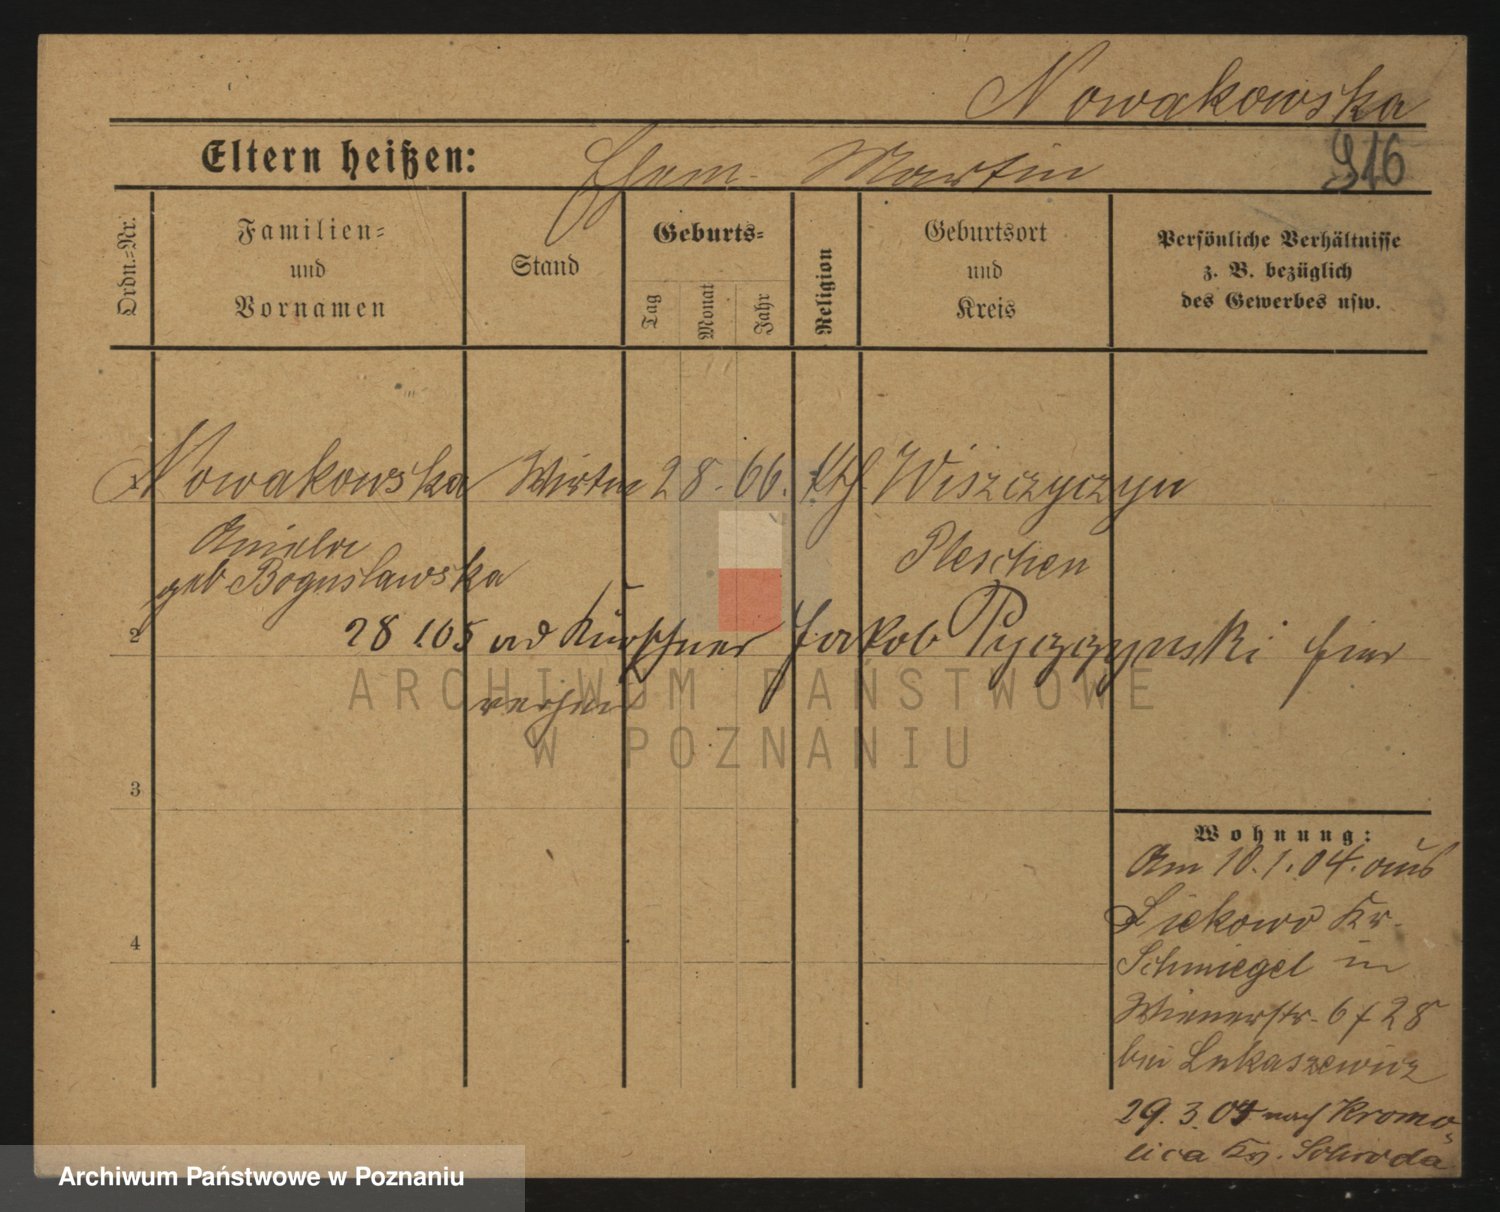 Nowakowska
Eltern heißen: Ehem. Martin 916
Ordn.-Nr.
Familien-
und
Vornamen
Stand
Geburts-
Tag
Monat
Jahr
Religion
Geburtsort
und
Kreis
Persönliche Verhältnisse
z. B. bezüglich
des Gewerbes usw.
1 Nowakowska Wirtin 28. 66. kth. Wiszczyczyn
Aniela Pleschen
geb Boguslawska
2 28 1.05 Kürschner Jakob Pyczynski hier
ARCHIWUM PAŃSTWOWE
W POZNANIU
3
4
Wohnung:
Am 10.1.04. aus
Siekowo Kr.
Schmiegel in
Wienerstr. 6 f 28
bei Lukaszewicz
29.3.04 nach Kromo-
lica Kr. Schroda
Archiwum Państwowe w Poznaniu